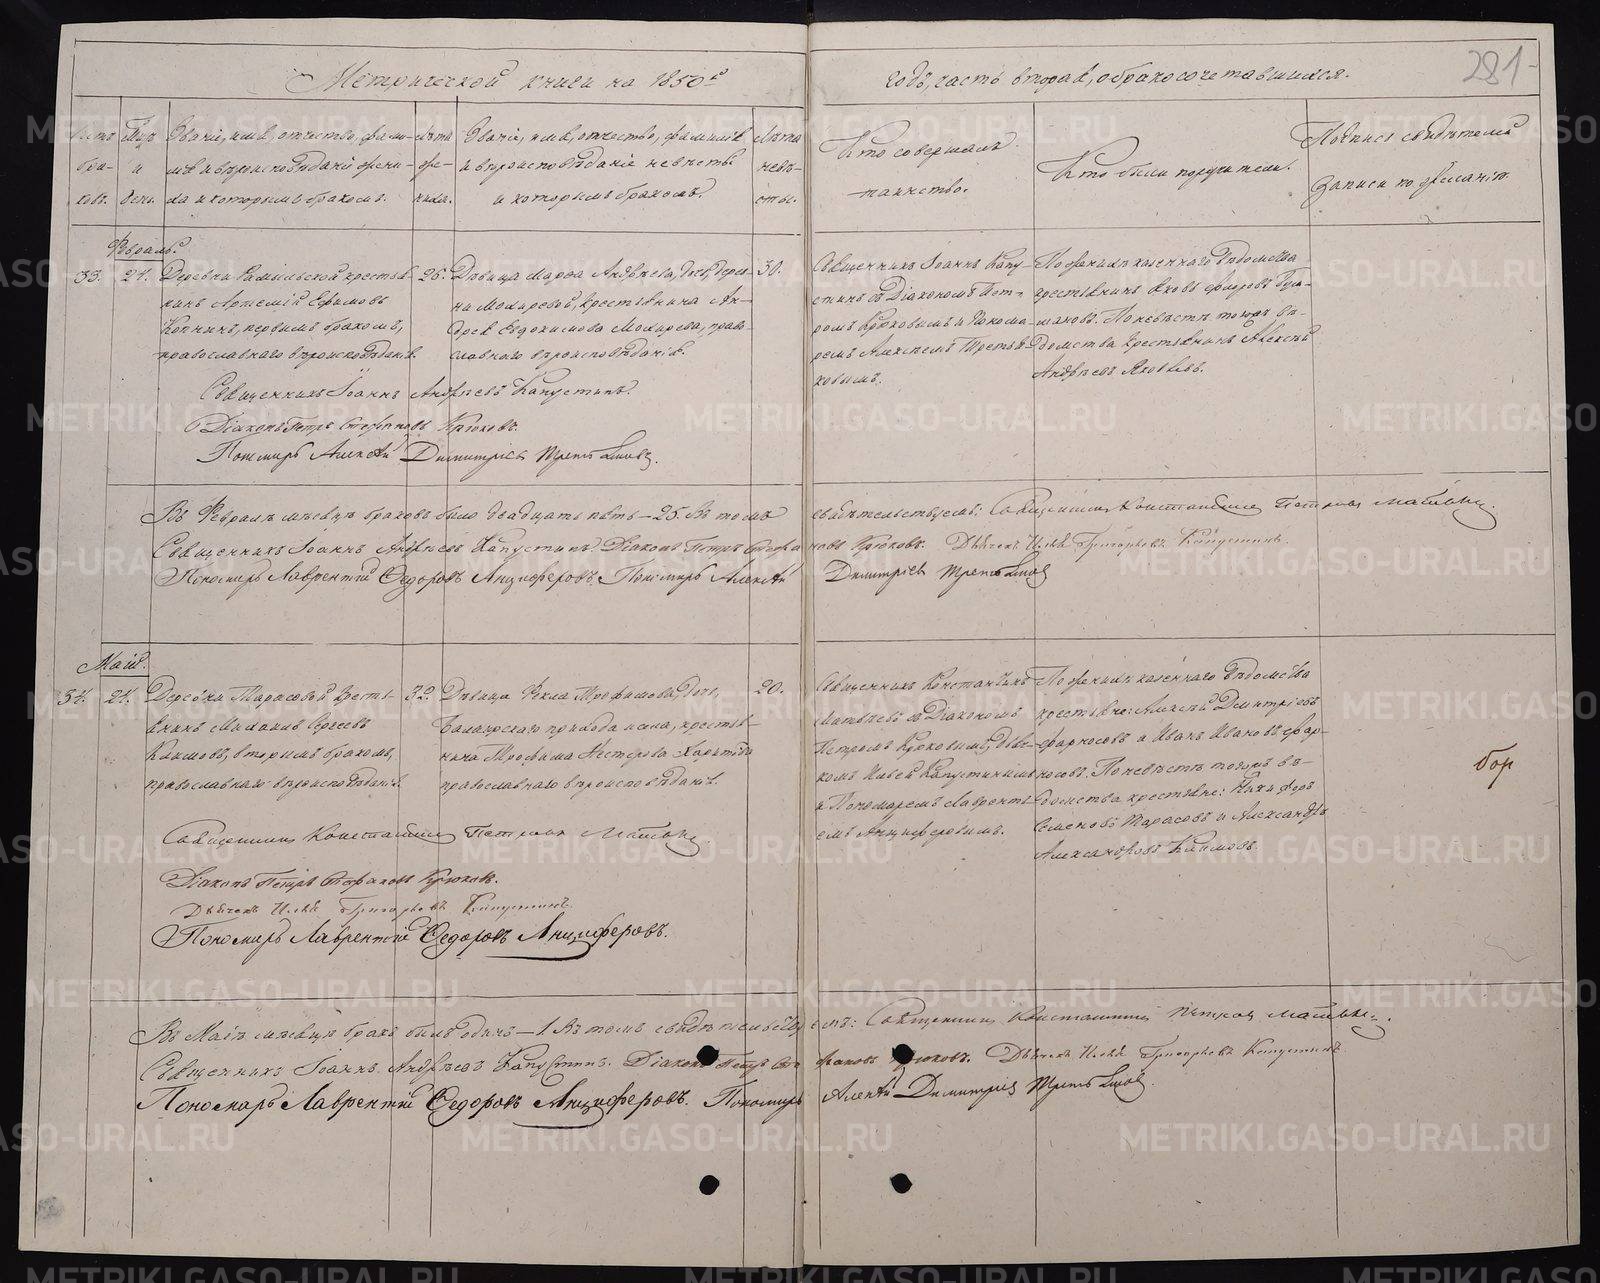 281
Метрической книги на 1850й
годъ, часть вторая, о бракосочетавшихся.
Мѣц и день.
Званіе, имя, отчество, фамилія и вѣроисповѣданіе жениха и которымъ бракомъ.
Лѣта жениха.
Званіе, имя, отчество, фамилія и вѣроисповѣданіе невѣсты и которымъ бракомъ.
Лѣта невѣсты.
Кто совершалъ таинство.
Кто были поручители.
Подпись свидѣтелей записи по желанію.
Февраль.
33.
Деревни
крестья-
нинъ Артемій Ефимовъ
Копнинъ, первымъ бракомъ,
православнаго вѣроисповѣданія.
Дѣвица Марѳа Андрѣева, дочь, дерев-
ни Мокиревой, крестьянина Ан-
дрея Евдокимова Мокирева, право-
славнаго вѣроисповѣданія.
30.
Священникъ Іоаннъ Капу-
стинъ съ Діакономъ Пет-
ромъ Крюковымъ и Понома-
ремъ Алексѣемъ Третья-
ковымъ.
По женихѣ казеннаго вѣдомства
крестьянинъ Яковъ Федоровъ
По невѣстѣ тогожъ вѣ-
домства крестьянинъ Алексѣй
Андрѣевъ Яковлевъ.
Священникъ Іоаннъ Андрѣевъ Капустинъ.
Діаконъ Петръ Стефановъ Крюковъ.
Пономарь Алексѣй Димитріевъ Третьяковъ.
Въ Февралѣ мѣсяцѣ браковъ было двадцать пять – 25. Въ томъ свидѣтельствуемъ: Священникъ Константинъ Петровъ Матвѣевъ.
Священникъ Іоаннъ Андрѣевъ Капустинъ. Діаконъ Петръ Стефановъ Крюковъ. Дьячекъ Илья Григорьевъ Капустинъ.
Пономарь Лаврентій Ѳедоровъ Анциферовъ. Пономарь Алексѣй Димитріевъ Третьяковъ
Май.
34.
21.
Деревни Тарасовой кресть-
янинъ
Сергѣевъ
Климовъ, вторымъ бракомъ,
православнаго вѣроисповѣданія.
32.
Дѣвица Ѳекла Трофимова, дочь,
прихода и села, крестья-
нина Трофима Нестерова
православнаго вѣроисповѣданія.
20.
Священникъ Константинъ
Матвѣевъ съ Діакономъ
Петромъ Крюковымъ, Дья-
комъ Ильей Капустинымъ
и Пономаремъ Лавренті-
емъ Анциферовымъ.
По женихѣ казеннаго вѣдомства
крестьяне: Алексѣй Димитріевъ
Фарносовъ и Иванъ Ивановъ Фар-
носовъ. По невѣстѣ тогожъ вѣ-
домства крестьяне: Никифоръ
Семеновъ Тарасовъ и Александръ
Александровъ Климовъ.
Священникъ Константинъ Петровъ Матвѣевъ.
Діаконъ Петръ Стефановъ Крюковъ.
Дьячекъ Илья Григорьевъ Капустинъ.
Пономарь Лаврентій Ѳедоровъ Анциферовъ.
Въ Маѣ мѣсяцѣ бракъ былъ одинъ – 1. Въ томъ свидѣтельствуемъ: Священникъ Константинъ Петровъ Матвѣевъ.
Священникъ Іоаннъ Андрѣевъ Капустинъ. Діаконъ Петръ Стефановъ Крюковъ. Дьячекъ Илья Григорьевъ Капустинъ.
Пономарь Лаврентій Ѳедоровъ Анциферовъ. Пономарь Алексѣй Димитріевъ Третьяковъ.
METRIKI.GASO-URAL.RU